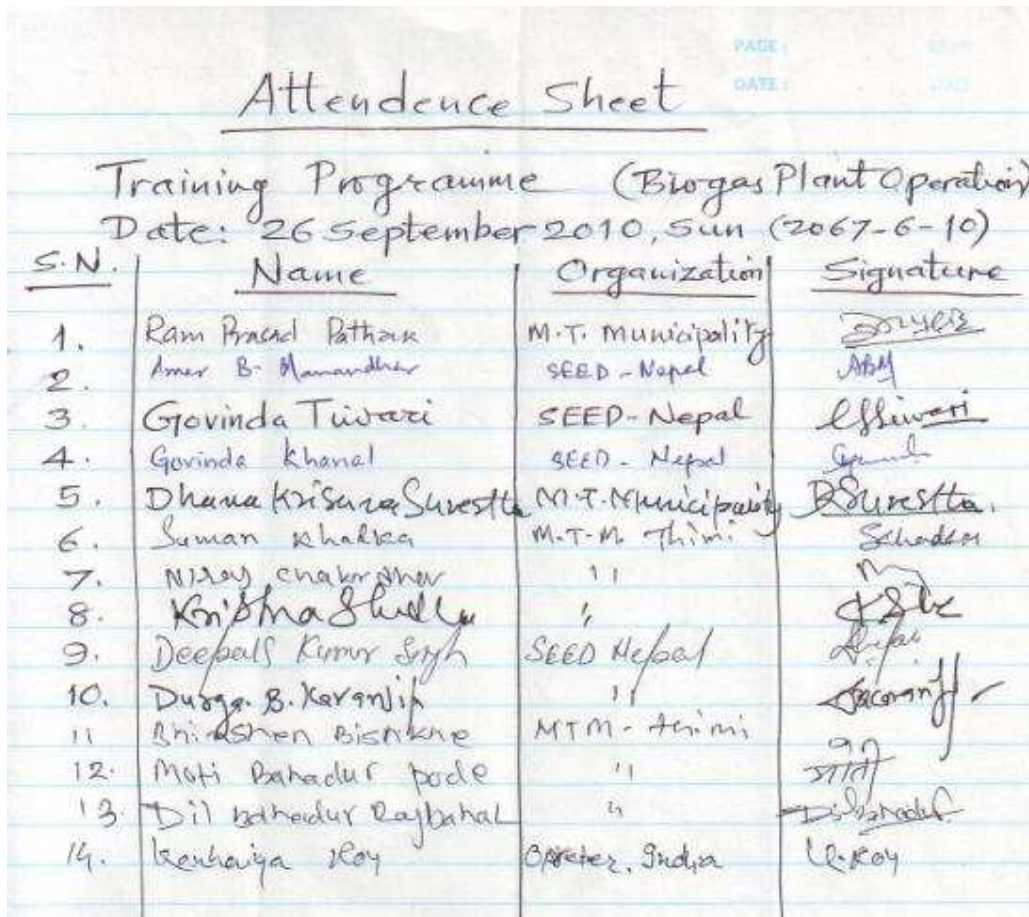 PAGE:
DATE:
Attendence Sheet
Training Programme (Biogas Plant Operation)
Date: 26 September 2010, Sun (2067-6-10)
S.N. Name Organization Signature
1. Ram Prasad Pathak M.T. Municipality
2. Amar B. Manandhar SEED-Nepal ABM
3. Govinda Tiwari SEED-Nepal Tiwari
4. Govinda Khanal SEED-Nepal
5. Dhana Krisura Surestta M.T. Municipality DSurestta.
6. Suman Khadka M.T.M. Thimi
7. Niraj "
8. Krishna "
9. Deepak Kumar Singh SEED Nepal
10. Durga. B. Karanjit "
11 Bishkhe MTM-thimi
12. Moti Bahadur pode " माती
13. Dil bahadur Rajbahal " Dilbahadur
14. Kenhaiya Roy India K.Roy